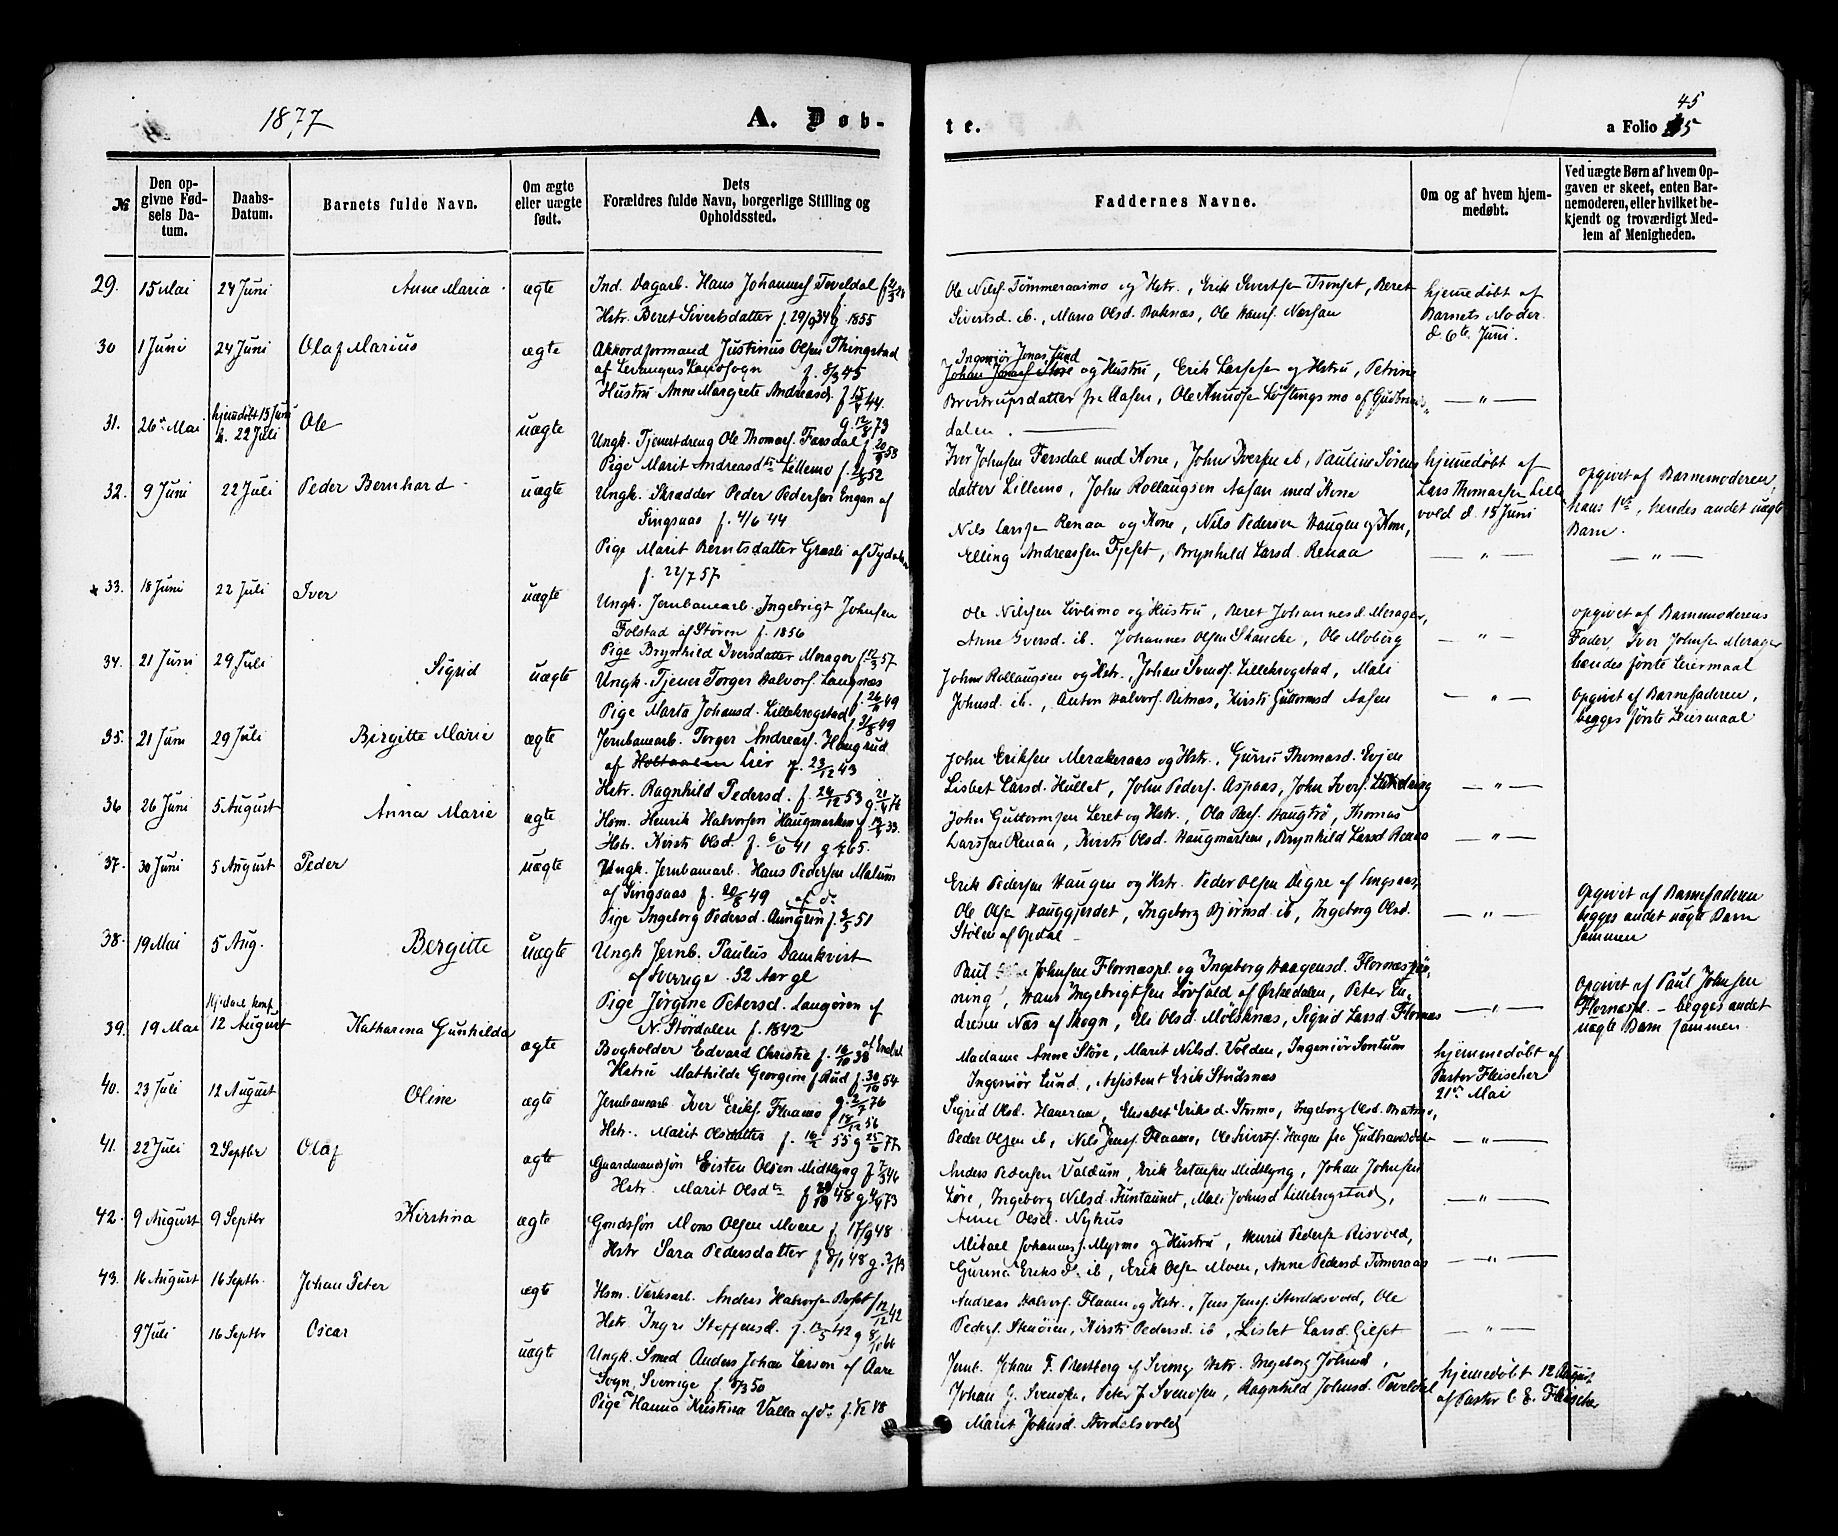 1877
A. Døb-
te.
45
a Folio 25
№
Den op-
givne Fød-
sels Da-
tum.
Daabs-
Datum.
Barnets fulde Navn.
Om ægte
eller uægte
født.
Dets
Forældres fulde Navn, borgerlige Stilling og
Opholdssted.
Faddernes Navne.
Om og af hvem hjem-
medøbt.
Ved uægte Børn af hvem Op-
gaven er skeet, enten Bar-
nemoderen, eller hvilket be-
kjendt og troværdigt Med-
lem af Menigheden.
29. 15 Mai 24 Juni Anne Maria ægte
Ind. Dagarb. Hans Johannesf Teveldal
Hstr. Beret Sivertsdatter f. 29/9 34 g. 1855
Ole Nilsf. Tømmeraasmo og Hstr., Erik Sivertsen Tronset, Beret
Sivertsd. ib., Maria Olsd. Baknæs, Ole Hansf. Næsan
hjemedøbt af
Barnets Moder
d. 6te Juni.
30 1 Juni 24 Juni Olaf Marius ægte
Akkordformand Justinus Olsen Thingstad
af Levangers Landsogn f. 8/3 45
Hustru Anne Margrete Andreasd. f 15/4 44.
g. 12/8 73
Ingeniør Jonas Lund
og Hustru, Erik Larsen og Hstru, Petrine
Brostrupsdatter fra Aasen, Ole Amundsen Løftingsmo af Gudbrands-
dalen.
— " —
31. 26de Mai hjemdøbt 15 Juni
k. 22 Juli Ole uægte
Ungk. Tjenestdreng Ole Thomasf. Farsdal f. 20/9 53
Pige Marit Andreasdtr Lillemo f. 52
Iver Johnsen Fersdal med Kone, John Iversen ib, Pauline Sørens
datter Lillemo, John Rollaugsen Aasan med Kone
hjemedøbt af
Lars Thomassen Lille
vold d. 15 Juni
opgivet af Barnemoderen,
hans 1ste, hendes andet uægte
Barn.
32. 9 Juni 22 Juli Peder Bernhard uægte
Ungk. Skrædder Peder Pedersen Engan af
Singsaas f. 4/6 44
Pige Marit Berntsdatter Græsli af Tydalen
f. 22/7 57
Nils Larsen Renaa og Kone, Nils Pedersen Haugen og Kone,
Elling Andreassen Fjeset, Brynhild Larsd. Renaa
— " —
— " —
33. 18 Juni 22 Juli Iver uægte
Ungk. Jernbanearb. Ingebrigt Johnsen
Folstad af Støren f. 1856
Pige Brynhild Iversdatter Merager f 12/3 57
Ole Nilsen Løvlimo og Hustru, Beret Johannesd. Merager,
Anne Iversd. ib. Johannes Olsen Skancke, Ole Moberg
— " —
opgivet af Barnmoderens
Fader, Iver Johnsen Merager
hendes første Leiermaal
34. 21 Juni 29 Juli Sigrid uægte
Ungk. Tjener Torger Halvorf. Langnæs
f. 26/11 49
Pige Marta Johansd. Lillekregstad f. 31/8 49
John Rollaugsen og Hstr., Johan Svensf. Lillekregstad, Mali
Johnsd. ib., Anton Halvorf. Ritnæs, Kirsti Guttormsd Aasen
— " —
Opgivet af Barnefaderen,
begges første Leiermaal
35. 21 Juni 29 Juli Birgitte Marie ægte
Jernbanearb. Torger Andreasf. Haugrud
af Holtaalen Lier f. 23/12 43
Hstr. Ragnhild Pedersd. f. 26/12 53 g. 21/4 76
John Eriksen Merakeraas og Hstr., Gurru Thomasd. Evjen
Lisbet Larsd. Hullet, John Pedersf. Aspaas, John Iversf.
— " —
36 26 Juni 5 August Anna Marie ægte
Hsm. Henrik Halvorsen Haugmarken
Hstr. Kirsti Olsd. f. 6/6 41 g. 65.
John Guttormsen Leret og Hstr., Ola Haugtrø, Thomas
Larssen Renaa, Kirsti Olsd. Haugmarken, Brynhild Larsd Renaa
— " —
37. 30 Juni 5 August Peder uægte
Ungk. Jernbanearb. Hans Pedersen Malum
af Singsaas f. 20/8 49
Pige Ingeborg Pedersd. Aungun af do f. 3/5 51
Erik Pedersen Haugen og Hstr. Peder Olsen Digre af Singsaas
Ole Olsen Hauggjerdet, Ingeborg Bjørnsd. ib, Ingeborg Olsd.
Stølen af Opdal
— " —
Opgivet af Barnefaderen
begges andet uægte Barn
sammen
38. 19 Mai 5 Aug. Bergitte uægte
Ungk Jernb. Paulus Damkvist
af Sverige. 52 Aar gl
Pige Jørgine Petersd. Langøren af
N. Stördalen f. 1842
Paul Johnsen Flornæspl. og Ingeborg Haagensd. Flornæs
Hans Ingebrigtsen Løvfald af Ørkedalen, Peter En-
dresen Næs af Skogn, Eli Olsd. Mølsknæs, Sigrid Larsd. Flornæs
— " —
Opgivet af Paul Johnsen
Flornæspl. – begges andet
uægte Barn sammen.
39. 19 Mai 12 August Katharina Gunhilda ægte
Bogholder Edvard Christie f. 16/10 38
Hstru Mathilde Georgine f. Rud f. 30/10 54
g. 2/7 76
Madame Anne Støre, Marit Nilsd. Volden, Ingeniør Sontum
Ingeniør Lund, Assistent Erik Stuesnæs
hjemmedøbt af
Pastor Fleischer
21de Mai
40. 23 Juli 12 August Oline ægte
Jernbanearb. Iver Eriksf. Flaamo f 17/12 56
Hstr. Marit Olsdatter f. 16/2 55 g 25/6 77
Sigrid Olsd. Haneran, Elisabet Eriksd. Stormo, Ingeborg Olsd.
Peder Olsen ib, Nils Jensf. Flaamo, Ole Sivertsf. Hagen fra Gudbrandsdal
— " —
41. 22 Juli 2 Septbr Olaf ægte
Gaardmandssøn Eisten Olsen Midtlyng f 7/3 46
Hstr. Marit Olsdtr f 48 g 73
Anders Pedersen Valdum, Erik Estensen Midtlyng, Johan Johnsen
Løre, Ingeborg Nilsd. Funtaunet, Mali Johnsd Lillekregstad,
Anne Olsd. Nyhus
— " —
42. 9 August 9 Septbr Kirstina ægte
Gmdssøn Mons Olsen Moen f 17/9 48
Hstr Sara Pedersdatter f 8/1 48 g. 73
Mikael Johannesf. Myrmo og Hustru, Marit Pedersd Risvold,
Gurina Eriksd. ib, Erik Olsen Moen, Anne Pedersd Tømeraas
— " —
43. 16 August 16 Septbr. Johan Peter ægte
Hsm. Verksarb. Anders Halvorsen f 12/12 42
Hstr Ingri Steffensd. f. 13/5 42 g 8/11 66
Andreas Halvorf. Flaaen og Hstr., Jens Jensf. Stordalsvold, Ole
Pedersf. Stenøien, Kirsti Pedersd. ib, Lisbet Larsd. Gilset
— " —
9 Juli 16 Septbr Oscar uægte
Ungk. Smed Anders Johan Larson af Aare
Sogn, Sverrige f. 50
Pige Hanna Kristina Valla af do f. 48
Jernb. Johan F. af Sverig Hstr. Ingeborg Johnsd,
Johan G. Svensen, Peter J Svensen, Ragnhild Johnsd. Teveldal
Marit Johnsd. Stordalsvold
hjemmedøbt 12 August
af Pastor C. E. Fleischer